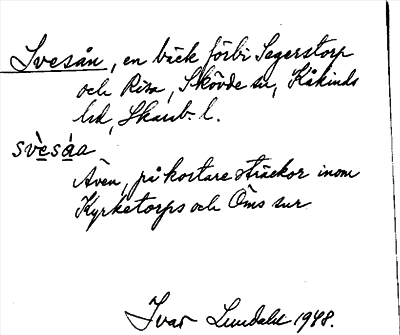 Svesån, en bäck förbi Segerstorp
och Risa, Skövde sn, Kåkinds
hd, Skarab. l.
svèsáa
Även, på kortare sträckor inom
Kyrketorps och Öms snr
Ivar Lundahl 1948.